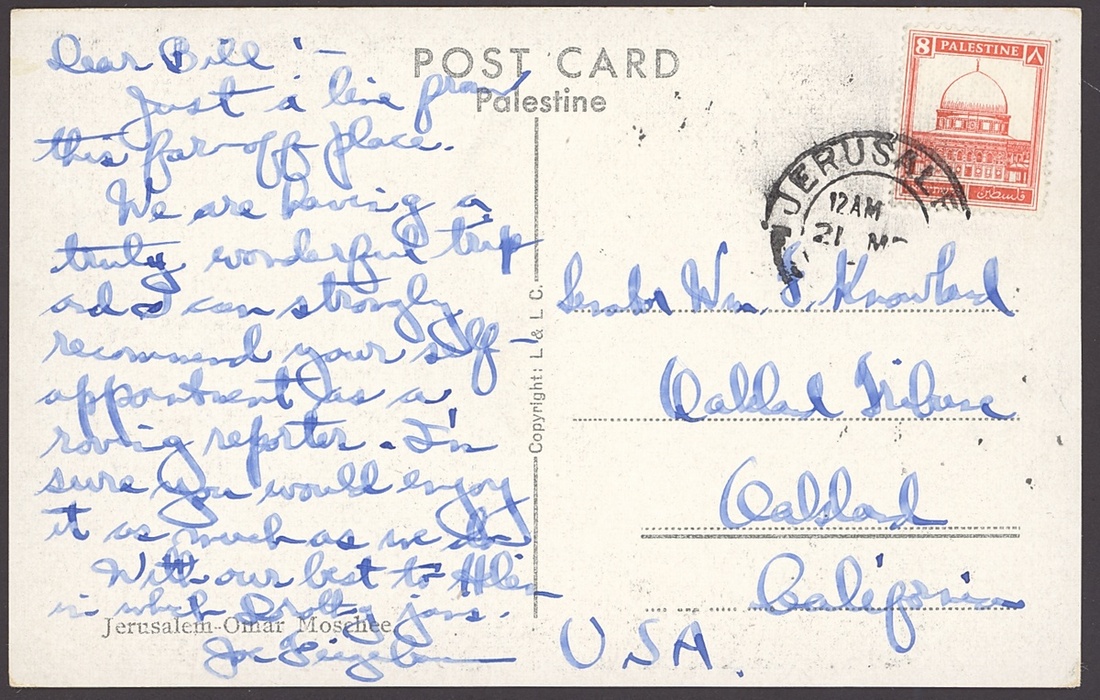 POST CARD
Palestine
Dear Bill :-
Just a line from
this far-off place.
We are having a
truly wonderful trip
and I can strongly
recommend your self-
appointment as a
roving reporter. I'm
sure you would enjoy
it as much as we do
With our best to Helen
in which Dorothy joins.
Joe
Jerusalem-Omar Moschee
Copyright: L. & L. C.
8 PALESTINE ٨
فلسطين
JERUSALE
12AM
21 M
Senator Wm. F. Knowland
Oakland Tribune
Oakland
California
USA.